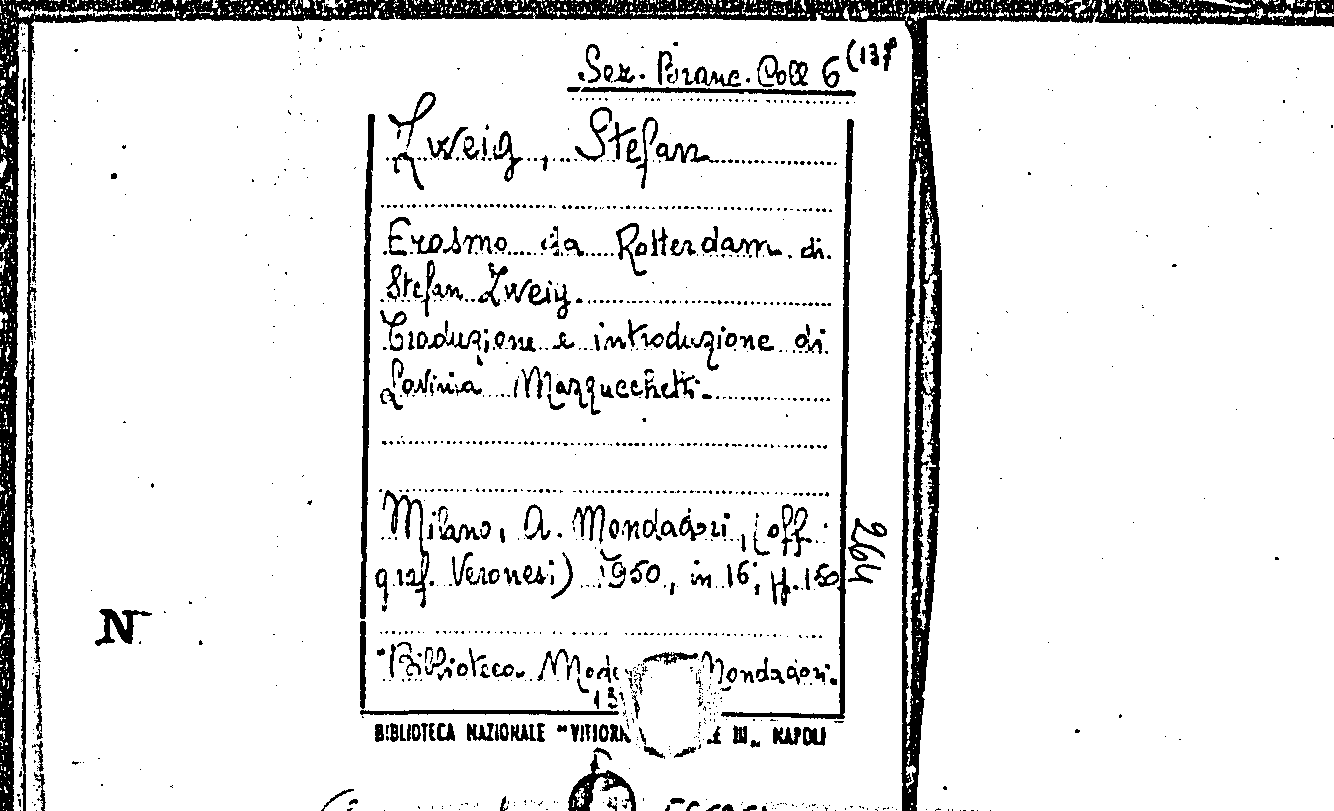 Sez. Branc. Coll 6 (137
Zweig, Stefan
Erasmo da Rotterdam di
Stefan Zweig.
Traduzione e introduzione di
Lavinia Mazzucchetti.
Milano, A. Mondadori, (off.
graf. Veronesi) 1950, in 16; pp. 150
264
"Biblioteca Mondadori.
N
BIBLIOTECA NAZIONALE III„ NAPOLI